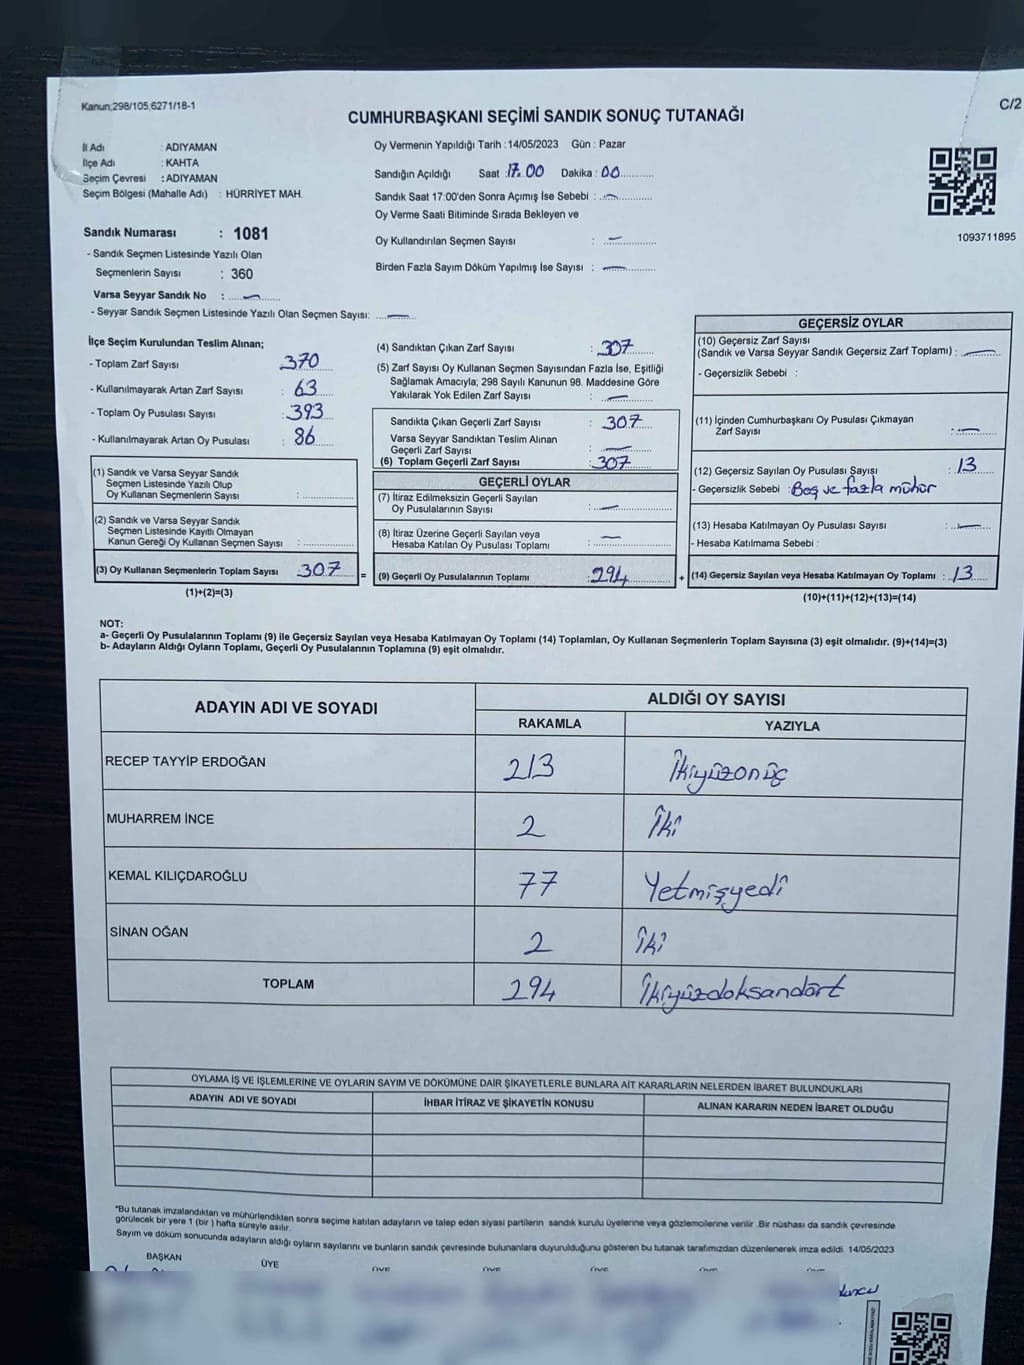 Kanun;298/105,6271/18-1
C/2
CUMHURBAŞKANI SEÇİMİ SANDIK SONUÇ TUTANAĞI
İl Adı : ADIYAMAN
İlçe Adı : KAHTA
Seçim Çevresi : ADIYAMAN
Seçim Bölgesi (Mahalle Adı) : HÜRRİYET MAH.
Sandık Numarası : 1081
- Sandık Seçmen Listesinde Yazılı Olan
Seçmenlerin Sayısı : 360
Varsa Seyyar Sandık No : —
- Seyyar Sandık Seçmen Listesinde Yazılı Olan Seçmen Sayısı: —
Oy Vermenin Yapıldığı Tarih : 14/05/2023 Gün : Pazar
Sandığın Açıldığı Saat : 17.00 Dakika : 00
Sandık Saat 17:00'den Sonra Açımış İse Sebebi : —
Oy Verme Saati Bitiminde Sırada Bekleyen ve
Oy Kullandırılan Seçmen Sayısı : —
Birden Fazla Sayım Döküm Yapılmış İse Sayısı : —
1093711895
İlçe Seçim Kurulundan Teslim Alınan;
- Toplam Zarf Sayısı : 370
- Kullanılmayarak Artan Zarf Sayısı : 63
- Toplam Oy Pusulası Sayısı : 393
- Kullanılmayarak Artan Oy Pusulası : 86
(1) Sandık ve Varsa Seyyar Sandık
Seçmen Listesinde Yazılı Olup
Oy Kullanan Seçmenlerin Sayısı :
(2) Sandık ve Varsa Seyyar Sandık
Seçmen Listesinde Kayıtlı Olmayan
Kanun Gereği Oy Kullanan Seçmen Sayısı :
(3) Oy Kullanan Seçmenlerin Toplam Sayısı : 307
(1)+(2)=(3)
(4) Sandıktan Çıkan Zarf Sayısı : 307
(5) Zarf Sayısı Oy Kullanan Seçmen Sayısından Fazla İse, Eşitliği
Sağlamak Amacıyla; 298 Sayılı Kanunun 98. Maddesine Göre
Yakılarak Yok Edilen Zarf Sayısı : —
Sandıkta Çıkan Geçerli Zarf Sayısı : 307
Varsa Seyyar Sandıktan Teslim Alınan
Geçerli Zarf Sayısı : —
(6) Toplam Geçerli Zarf Sayısı : 307
GEÇERLİ OYLAR
(7) İtiraz Edilmeksizin Geçerli Sayılan
Oy Pusulalarının Sayısı : —
(8) İtiraz Üzerine Geçerli Sayılan veya
Hesaba Katılan Oy Pusulası Toplamı : —
= (9) Geçerli Oy Pusulalarının Toplamı : 294
GEÇERSİZ OYLAR
(10) Geçersiz Zarf Sayısı
(Sandık ve Varsa Seyyar Sandık Geçersiz Zarf Toplamı) : —
- Geçersizlik Sebebi :
(11) İçinden Cumhurbaşkanı Oy Pusulası Çıkmayan
Zarf Sayısı : —
(12) Geçersiz Sayılan Oy Pusulası Sayısı : 13
- Geçersizlik Sebebi : Boş ve fazla mühür
(13) Hesaba Katılmayan Oy Pusulası Sayısı : —
- Hesaba Katılmama Sebebi :
+ (14) Geçersiz Sayılan veya Hesaba Katılmayan Oy Toplamı : 13
(10)+(11)+(12)+(13)=(14)
NOT:
a- Geçerli Oy Pusulalarının Toplamı (9) ile Geçersiz Sayılan veya Hesaba Katılmayan Oy Toplamı (14) Toplamları, Oy Kullanan Seçmenlerin Toplam Sayısına (3) eşit olmalıdır. (9)+(14)=(3)
b- Adayların Aldığı Oyların Toplamı, Geçerli Oy Pusulalarının Toplamına (9) eşit olmalıdır.
ADAYIN ADI VE SOYADI ALDIĞI OY SAYISI
RAKAMLA YAZIYLA
RECEP TAYYİP ERDOĞAN 213 İkiyüzonüç
MUHARREM İNCE 2 İki
KEMAL KILIÇDAROĞLU 77 Yetmişyedi
SİNAN OĞAN 2 İki
TOPLAM 294 İkiyüzdoksandört
OYLAMA İŞ VE İŞLEMLERİNE VE OYLARIN SAYIM VE DÖKÜMÜNE DAİR ŞİKAYETLERLE BUNLARA AİT KARARLARIN NELERDEN İBARET BULUNDUKLARI
ADAYIN ADI VE SOYADI İHBAR İTİRAZ VE ŞİKAYETİN KONUSU ALINAN KARARIN NEDEN İBARET OLDUĞU
*Bu tutanak imzalandıktan ve mühürlendikten sonra seçime katılan adayların ve talep eden siyasi partilerin sandık kurulu üyelerine veya gözlemcilerine verilir .Bir nüshası da sandık çevresinde
görülecek bir yere 1 (bir ) hafta süreyle asılır.
Sayım ve döküm sonucunda adayların aldığı oyların sayılarını ve bunların sandık çevresinde bulunanlara duyurulduğunu gösteren bu tutanak tarafımızdan düzenlenerek imza edildi. 14/05/2023
BAŞKAN ÜYE ÜYE ÜYE ÜYE ÜYE ÜYE